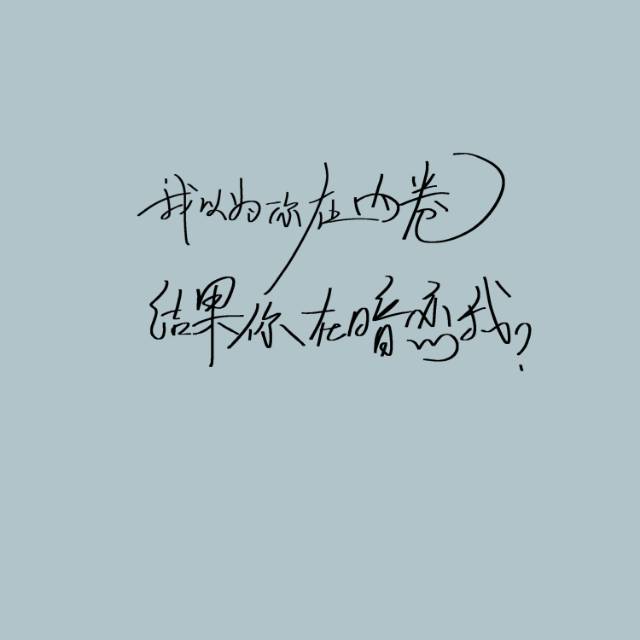 我以为你在内卷
结果你在暗恋我?